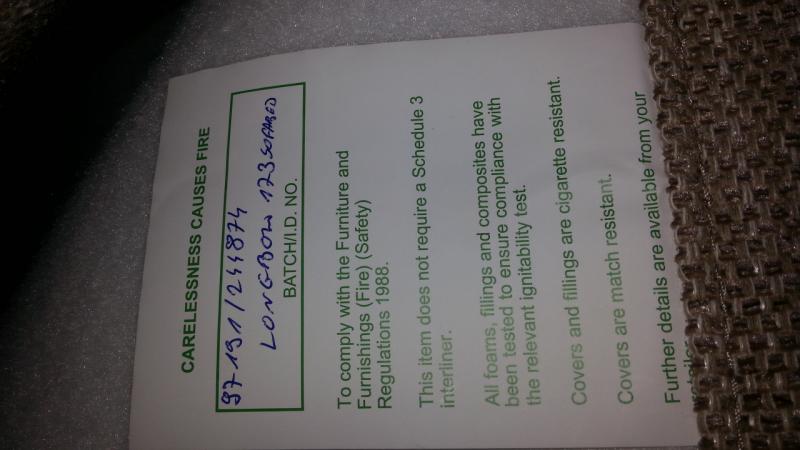 CARELESSNESS CAUSES FIRE
97191/244874
LONGBOW 123 SOFABED
BATCH/I.D. NO.
To comply with the Furniture and
Furnishings (Fire) (Safety)
Regulations 1988.
This item does not require a Schedule 3
interliner.
All foams, fillings and composites have
been tested to ensure compliance with
the relevant ignitability test.
Covers and fillings are cigarette resistant.
Covers are match resistant.
Further details are available from your